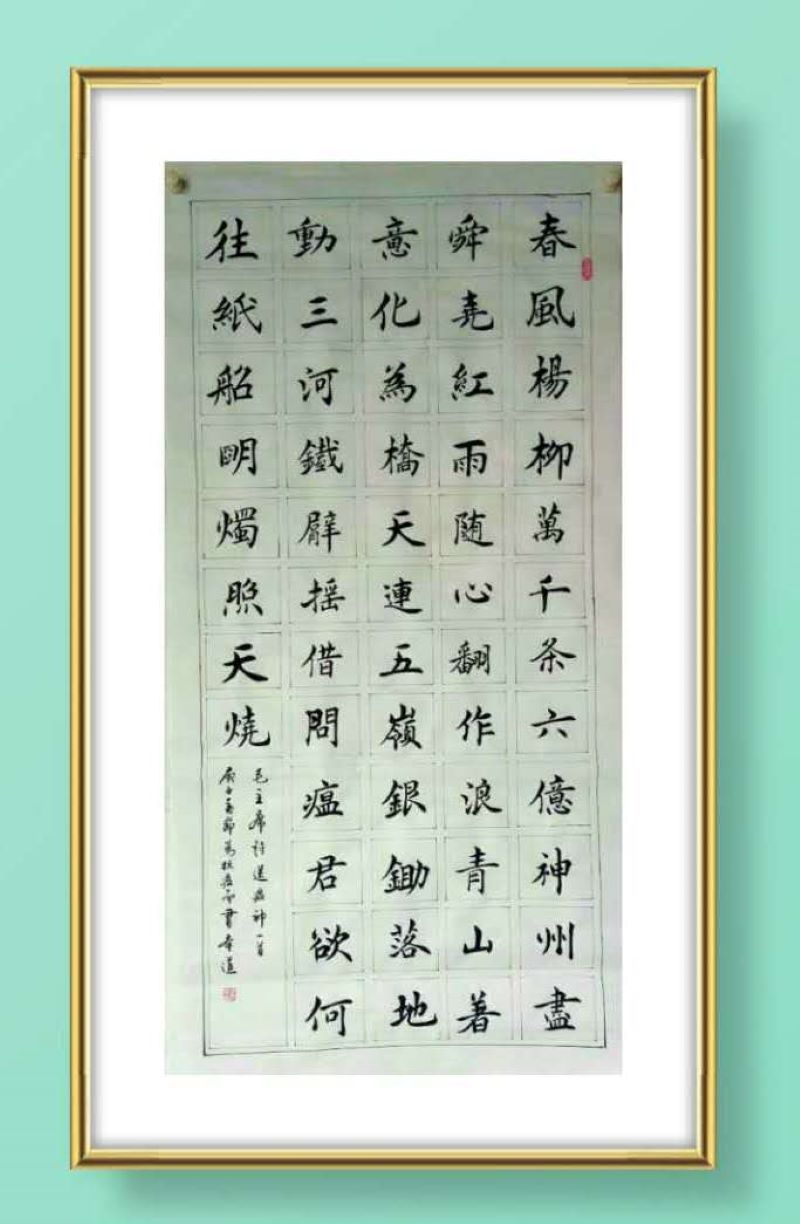 春風楊柳萬千条六億神州盡
舜堯紅雨随心翻作浪青山着
意化為橋天連五嶺銀鋤落地
動三河鐵臂摇借問瘟君欲何
往紙船明燭照天燒
毛主席詩送瘟神一首
庚子春節為抗疫而書